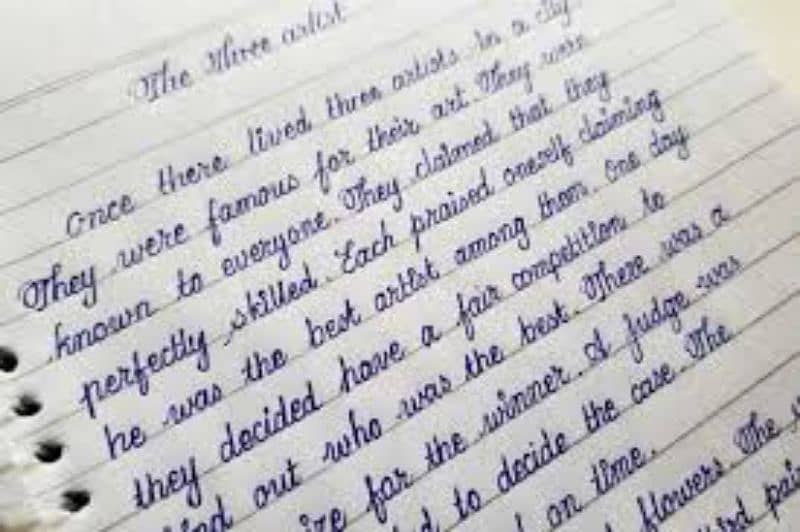 The Three artist
Once there lived three artists in a city
They were famous for their art They were
known to everyone. They claimed that they
perfectly skilled. Each praised oneself claiming
he was the best artist among them. One day
they decided have a fair competition to
out who was the best. There was a
for the winner. A judge was
to decide the case. The
on time.
flowers. The